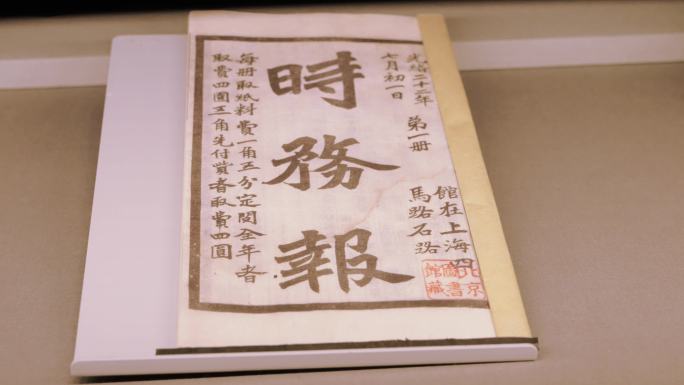 光緒二十二年
七月初一日
第一冊
館在上海四
馬路石路
時務報
每冊取紙料費一角五分定閱全年者
取費四圓三角先付貲者取費四圓
北京
圖書
館藏